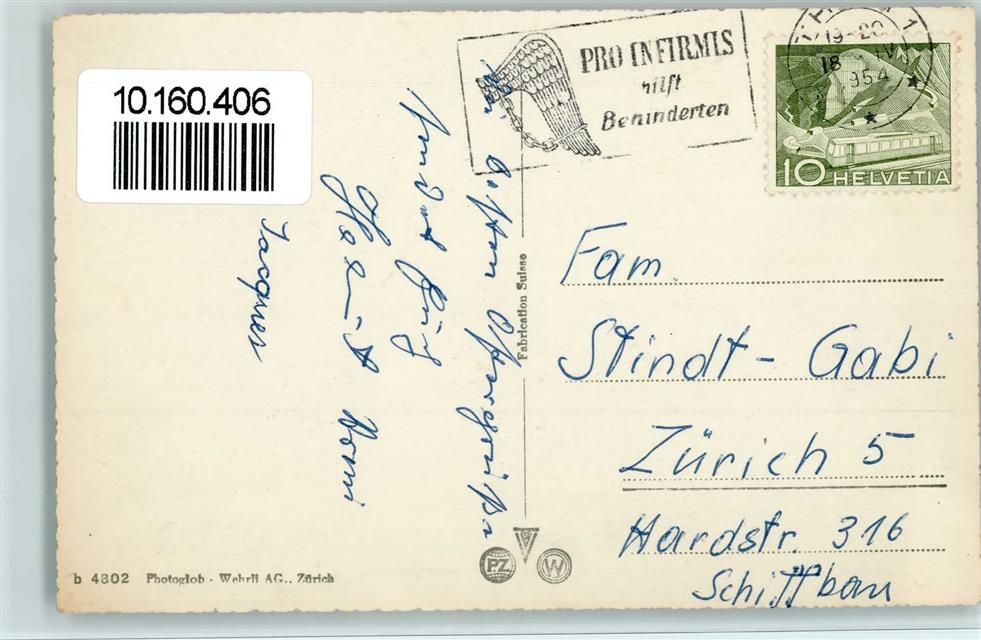 10.160.406
PRO INFIRMIS
hilft
Behinderten
19-20
18. IV
1954
10 HELVETIA
Die besten Ostergrüsse
Jacques
Fabrication Suisse
Fam.
Stindt - Gabi
Zürich 5
Hardstr. 316
Schiffbau
b 4802 Photoglob - Wehrli AG., Zürich
PZ
W